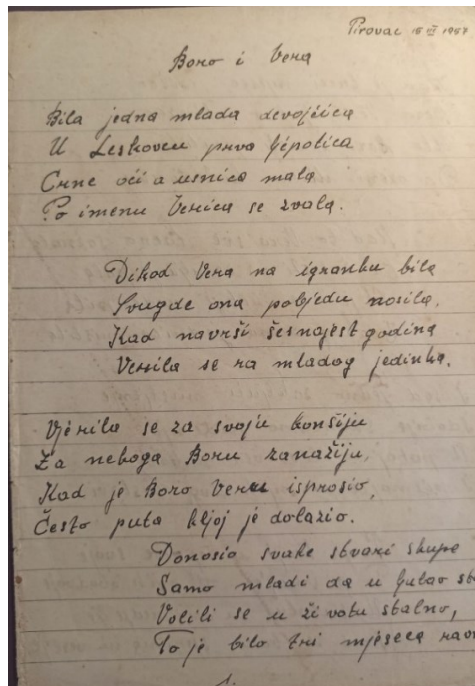 Pirovac 15 III 1957
Boro i Vera
Bila jedna mlada devojčica
U Leskovcu prva ljepotica
Crne oči a usnica mala
Po imenu Verica se zvala.
Dikod Vera na igranku bila
Svugde ona pobjedu nosila,
Kad navrši šesnajest godina
Verila se za mladog jedinka.
Vjerila se za svoju konšiju
Za neboga Boru zanažiju,
Kad je Boro Veru isprosio,
Često puta kljoj je dolazio.
Donosio svake stvari skupe
Samo mladi da u ljubav
Volili se u životu stalno,
To je bilo tri mjeseca
1.